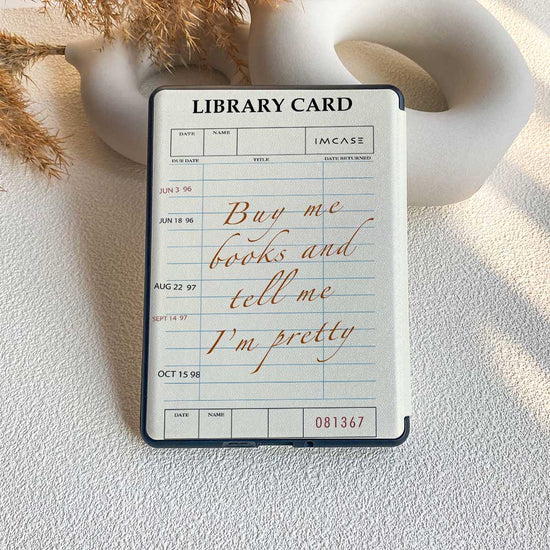 LIBRARY CARD
DATE NAME IMCASE
DUE DATE TITLE DATE RETURNED
JUN 3 96
JUN 18 96
Buy me
books and
AUG 22 97
tell me
SEPT 14 97
I'm pretty
OCT 15 98
DATE NAME 081367